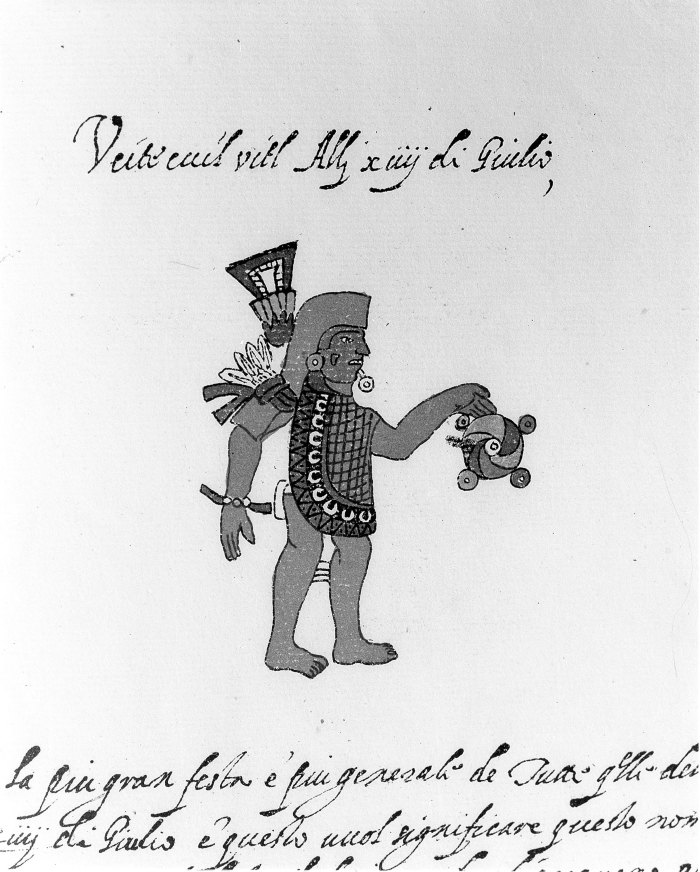 Veite cuil vitl Alli xiiij di Giulio,
la piu gran festa e piu generale de Tutte qlle dei
xiiij di Giulio e questo uuol significare questo nom